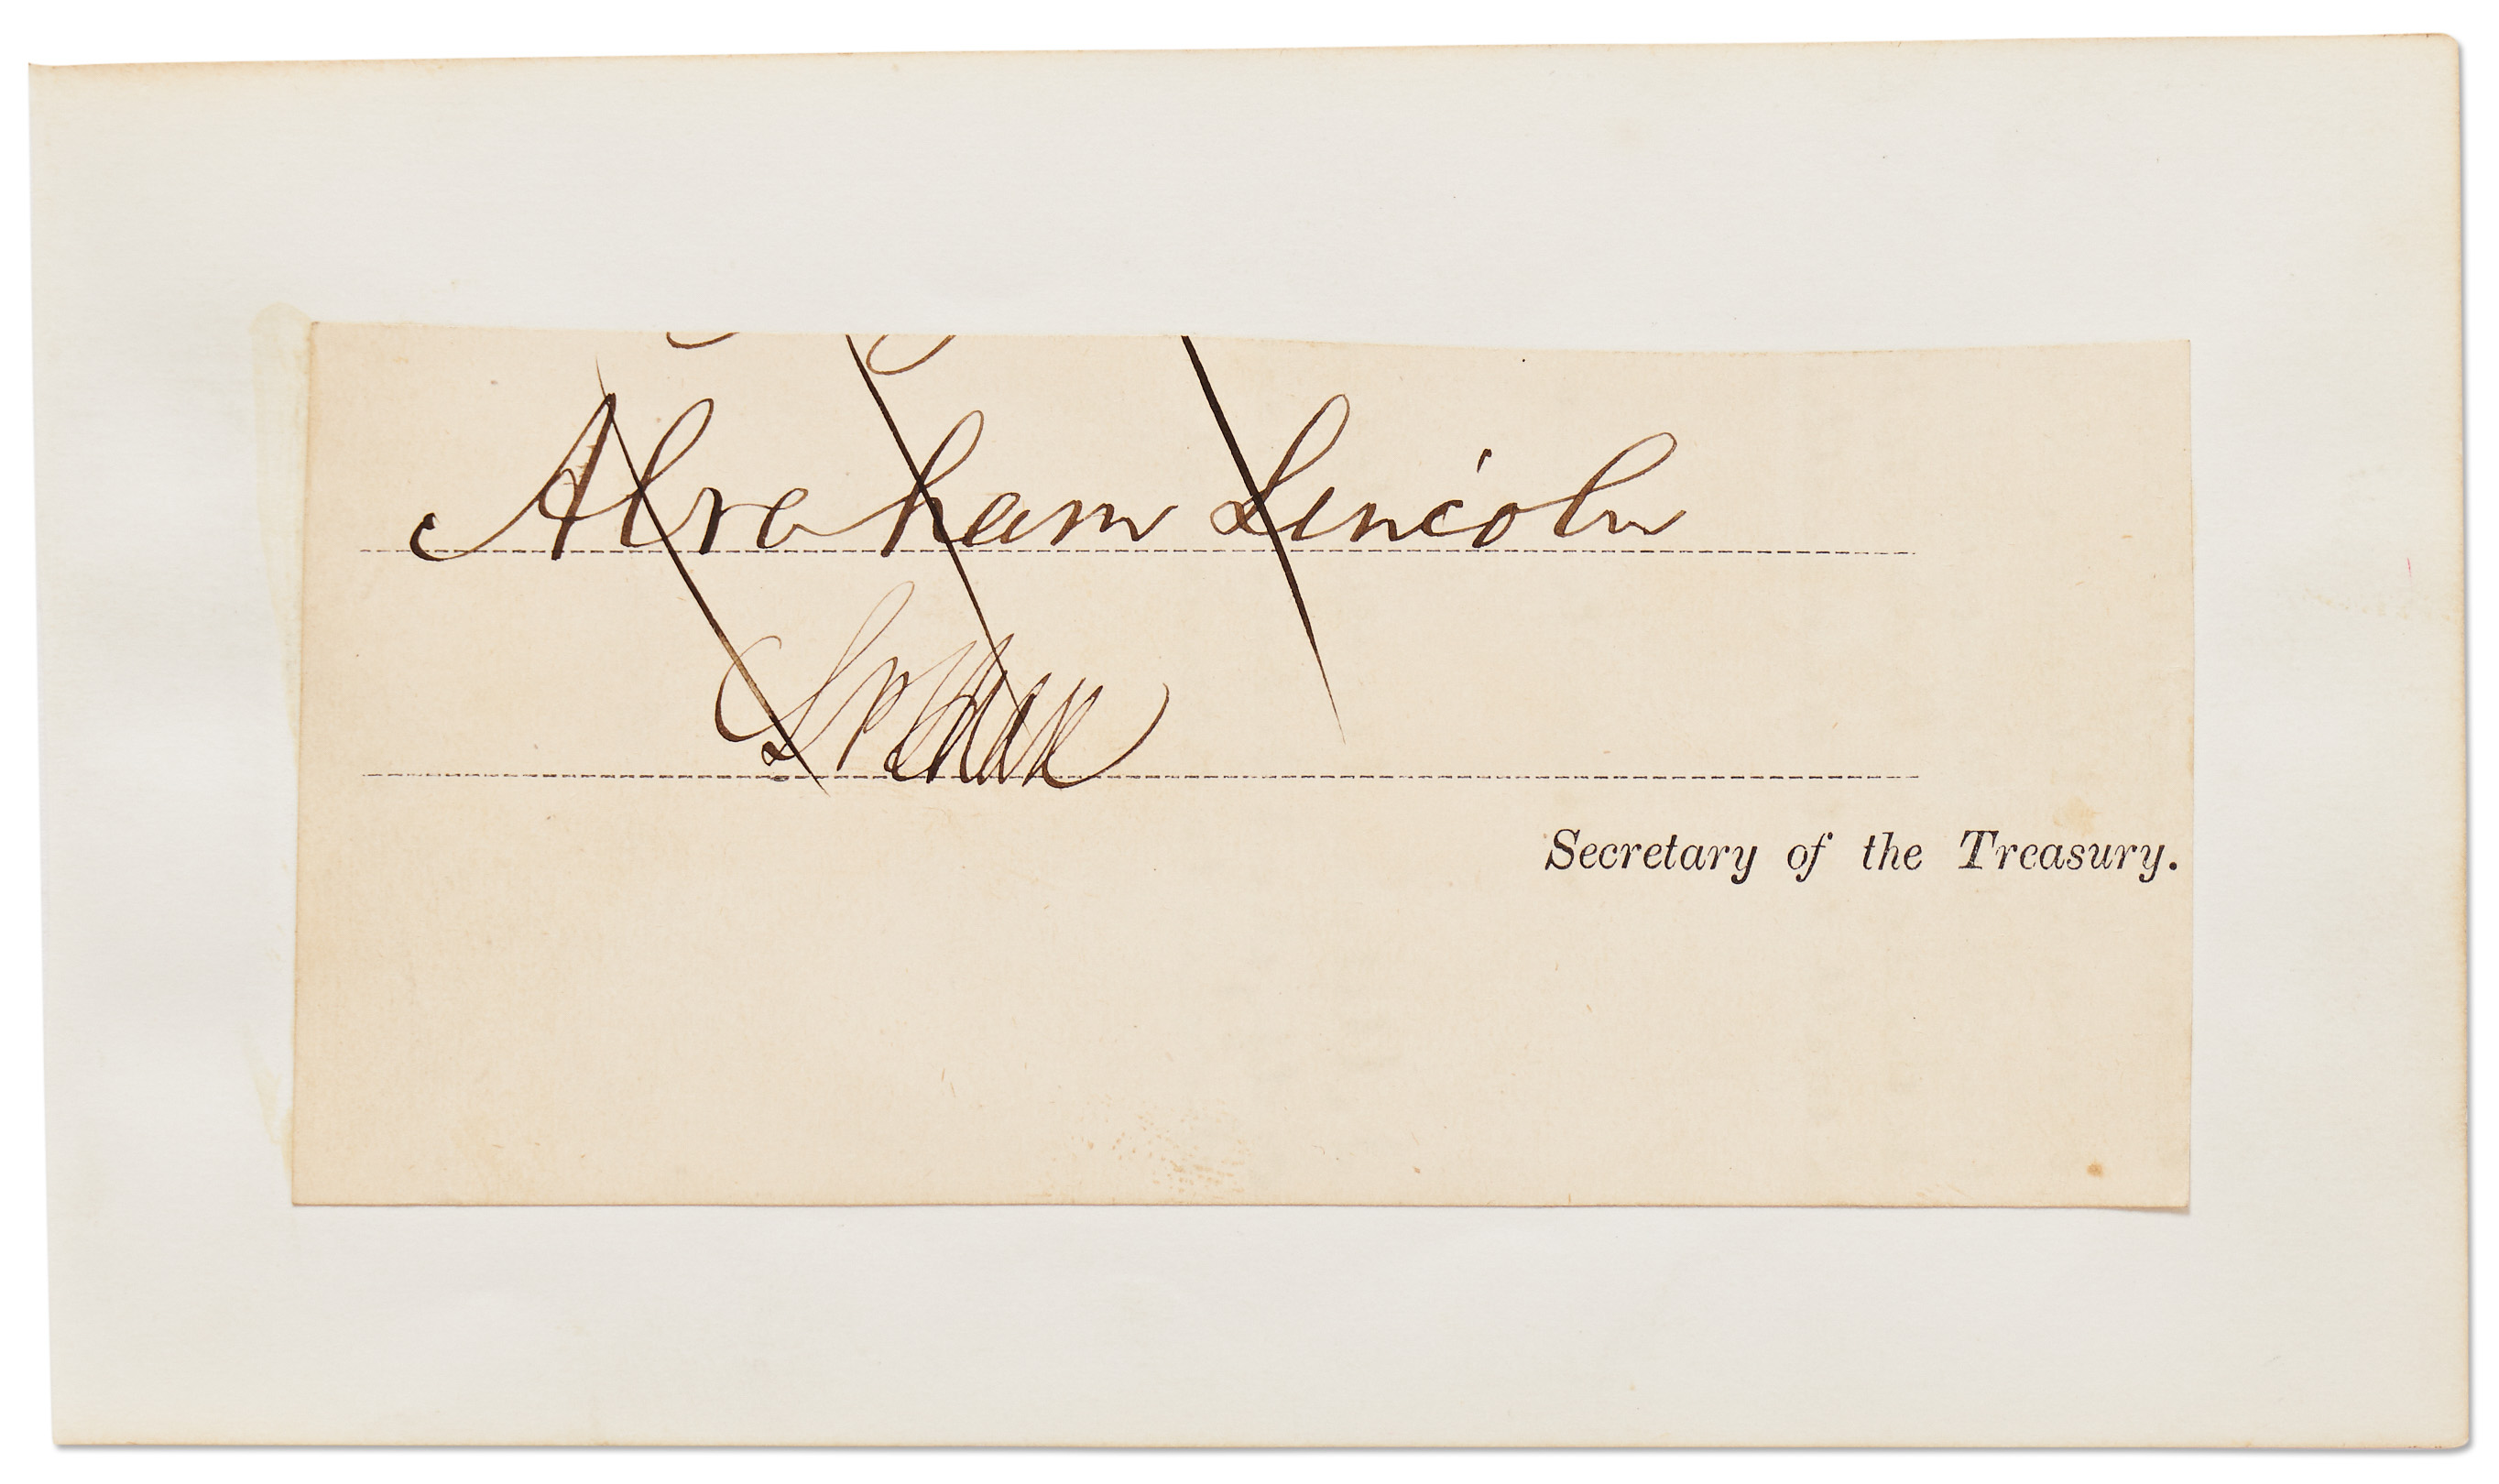 Abraham Lincoln
Secretary of the Treasury.